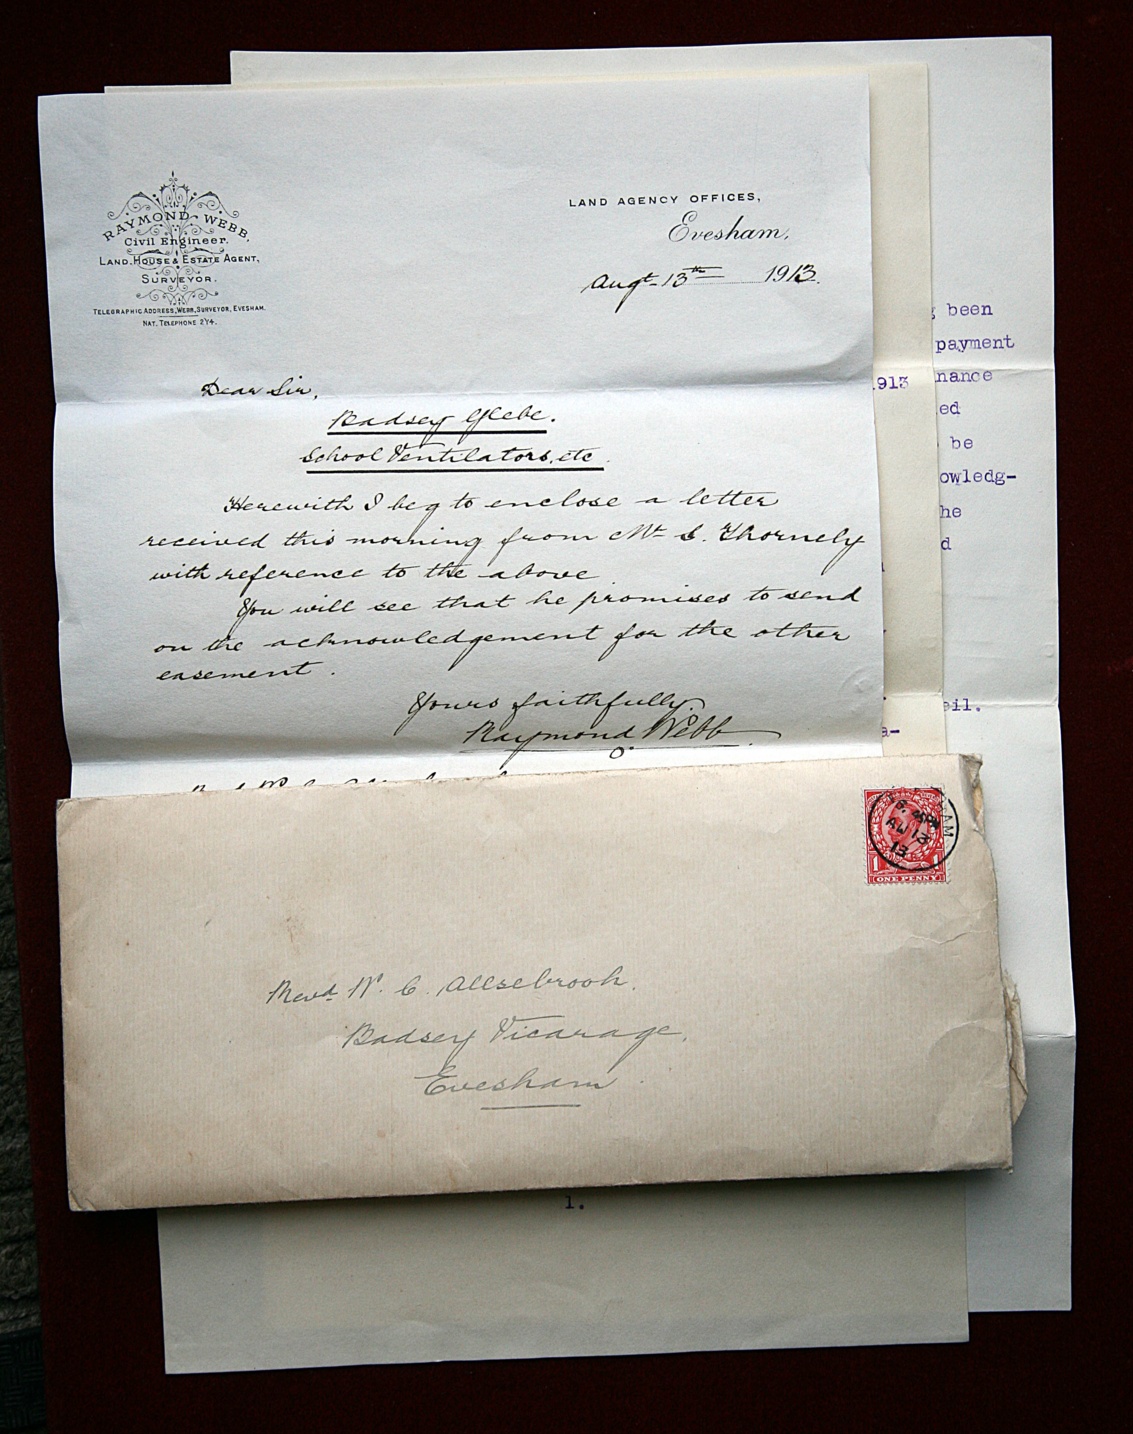 RAYMOND WEBB,
Civil Engineer.
LAND, HOUSE & ESTATE AGENT,
SURVEYOR.
TELEGRAPHIC ADDRESS, WEBB, SURVEYOR, EVESHAM.
NAT. TELEPHONE 2Y4.
LAND AGENCY OFFICES,
Evesham,
Augt 13th 1913.
Dear Sir,
Badsey Glebe.
School Ventilators, etc.
Herewith I beg to enclose a letter
received this morning from Mr S. Thornely
with reference to the above.
You will see that he promises to send
on the acknowledgement for the other
easement.
Yours faithfully,
Raymond Webb.
been
payment
913
nance
ed
be
owledg-
he
d
eil.
a-
AU 13
13
1 1
ONE PENNY
Revd. W. C. Allsebrook.
Badsey Vicarage,
Evesham.
1.